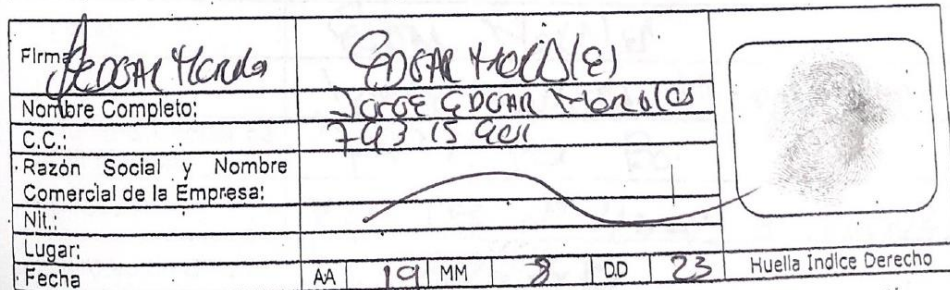 Firma EDGAR Morales EDGAR MORALES
Nombre Completo: Jorge EDGAR Morales
C.C.:
Razón Social y Nombre
Comercial de la Empresa:
Nit.:
Lugar:
Fecha AA 19 MM 8 DD 23
Huella Indice Derecho